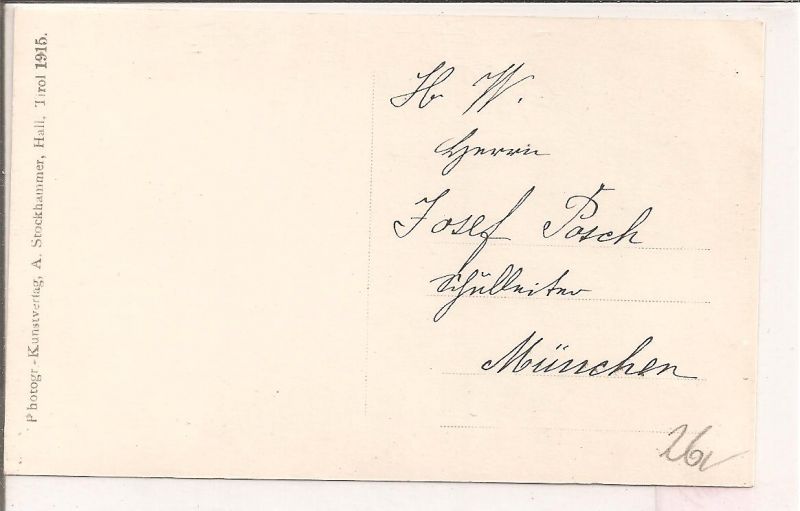 Photogr.-Kunstverlag, A. Stockhammer, Hall, Tirol 1915.
H W.
Herrn
Josef Posch
Schulleiter
München